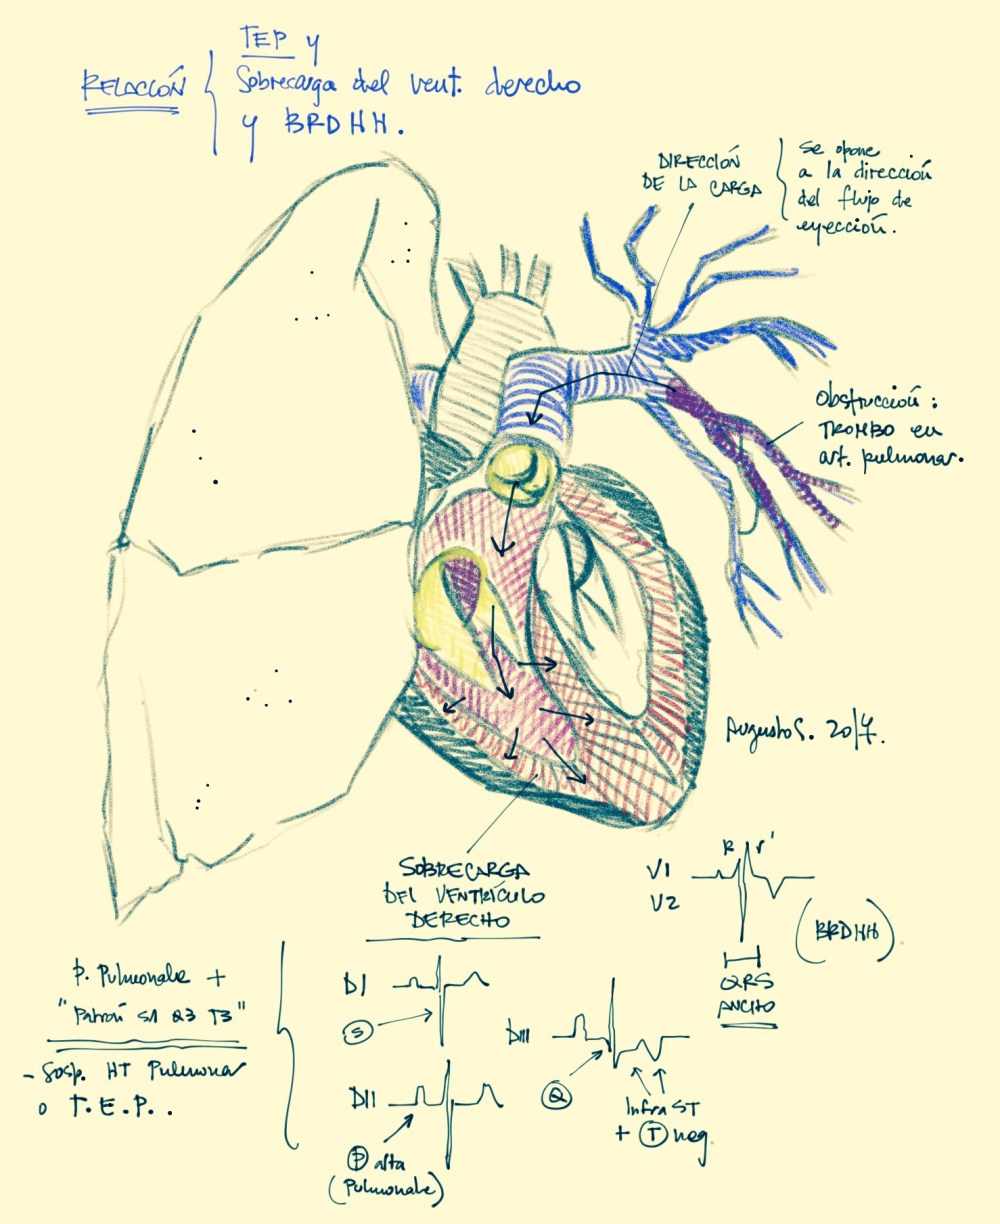 RELACCIÓN
TEP y
Sobrecarga del vent. derecho
y BRDHH.
DIRECCIÓN
DE LA CARGA
se opone
a la dirección
del flujo de
eyección.
Obstrucción:
TROMBO en
art. pulmonar.
Augusto S. 2017.
SOBRECARGA
DEL VENTRÍCULO
DERECHO
V1
V2
R r'
(BRDHH)
QRS
ANCHO
P. Pulmonale +
"Patrón S1 Q3 T3"
- Sosp. HT Pulmonar
o T.E.P..
DI
S
DII
P alta
(Pulmonale)
DIII
Q
Infra ST
+ T neg.